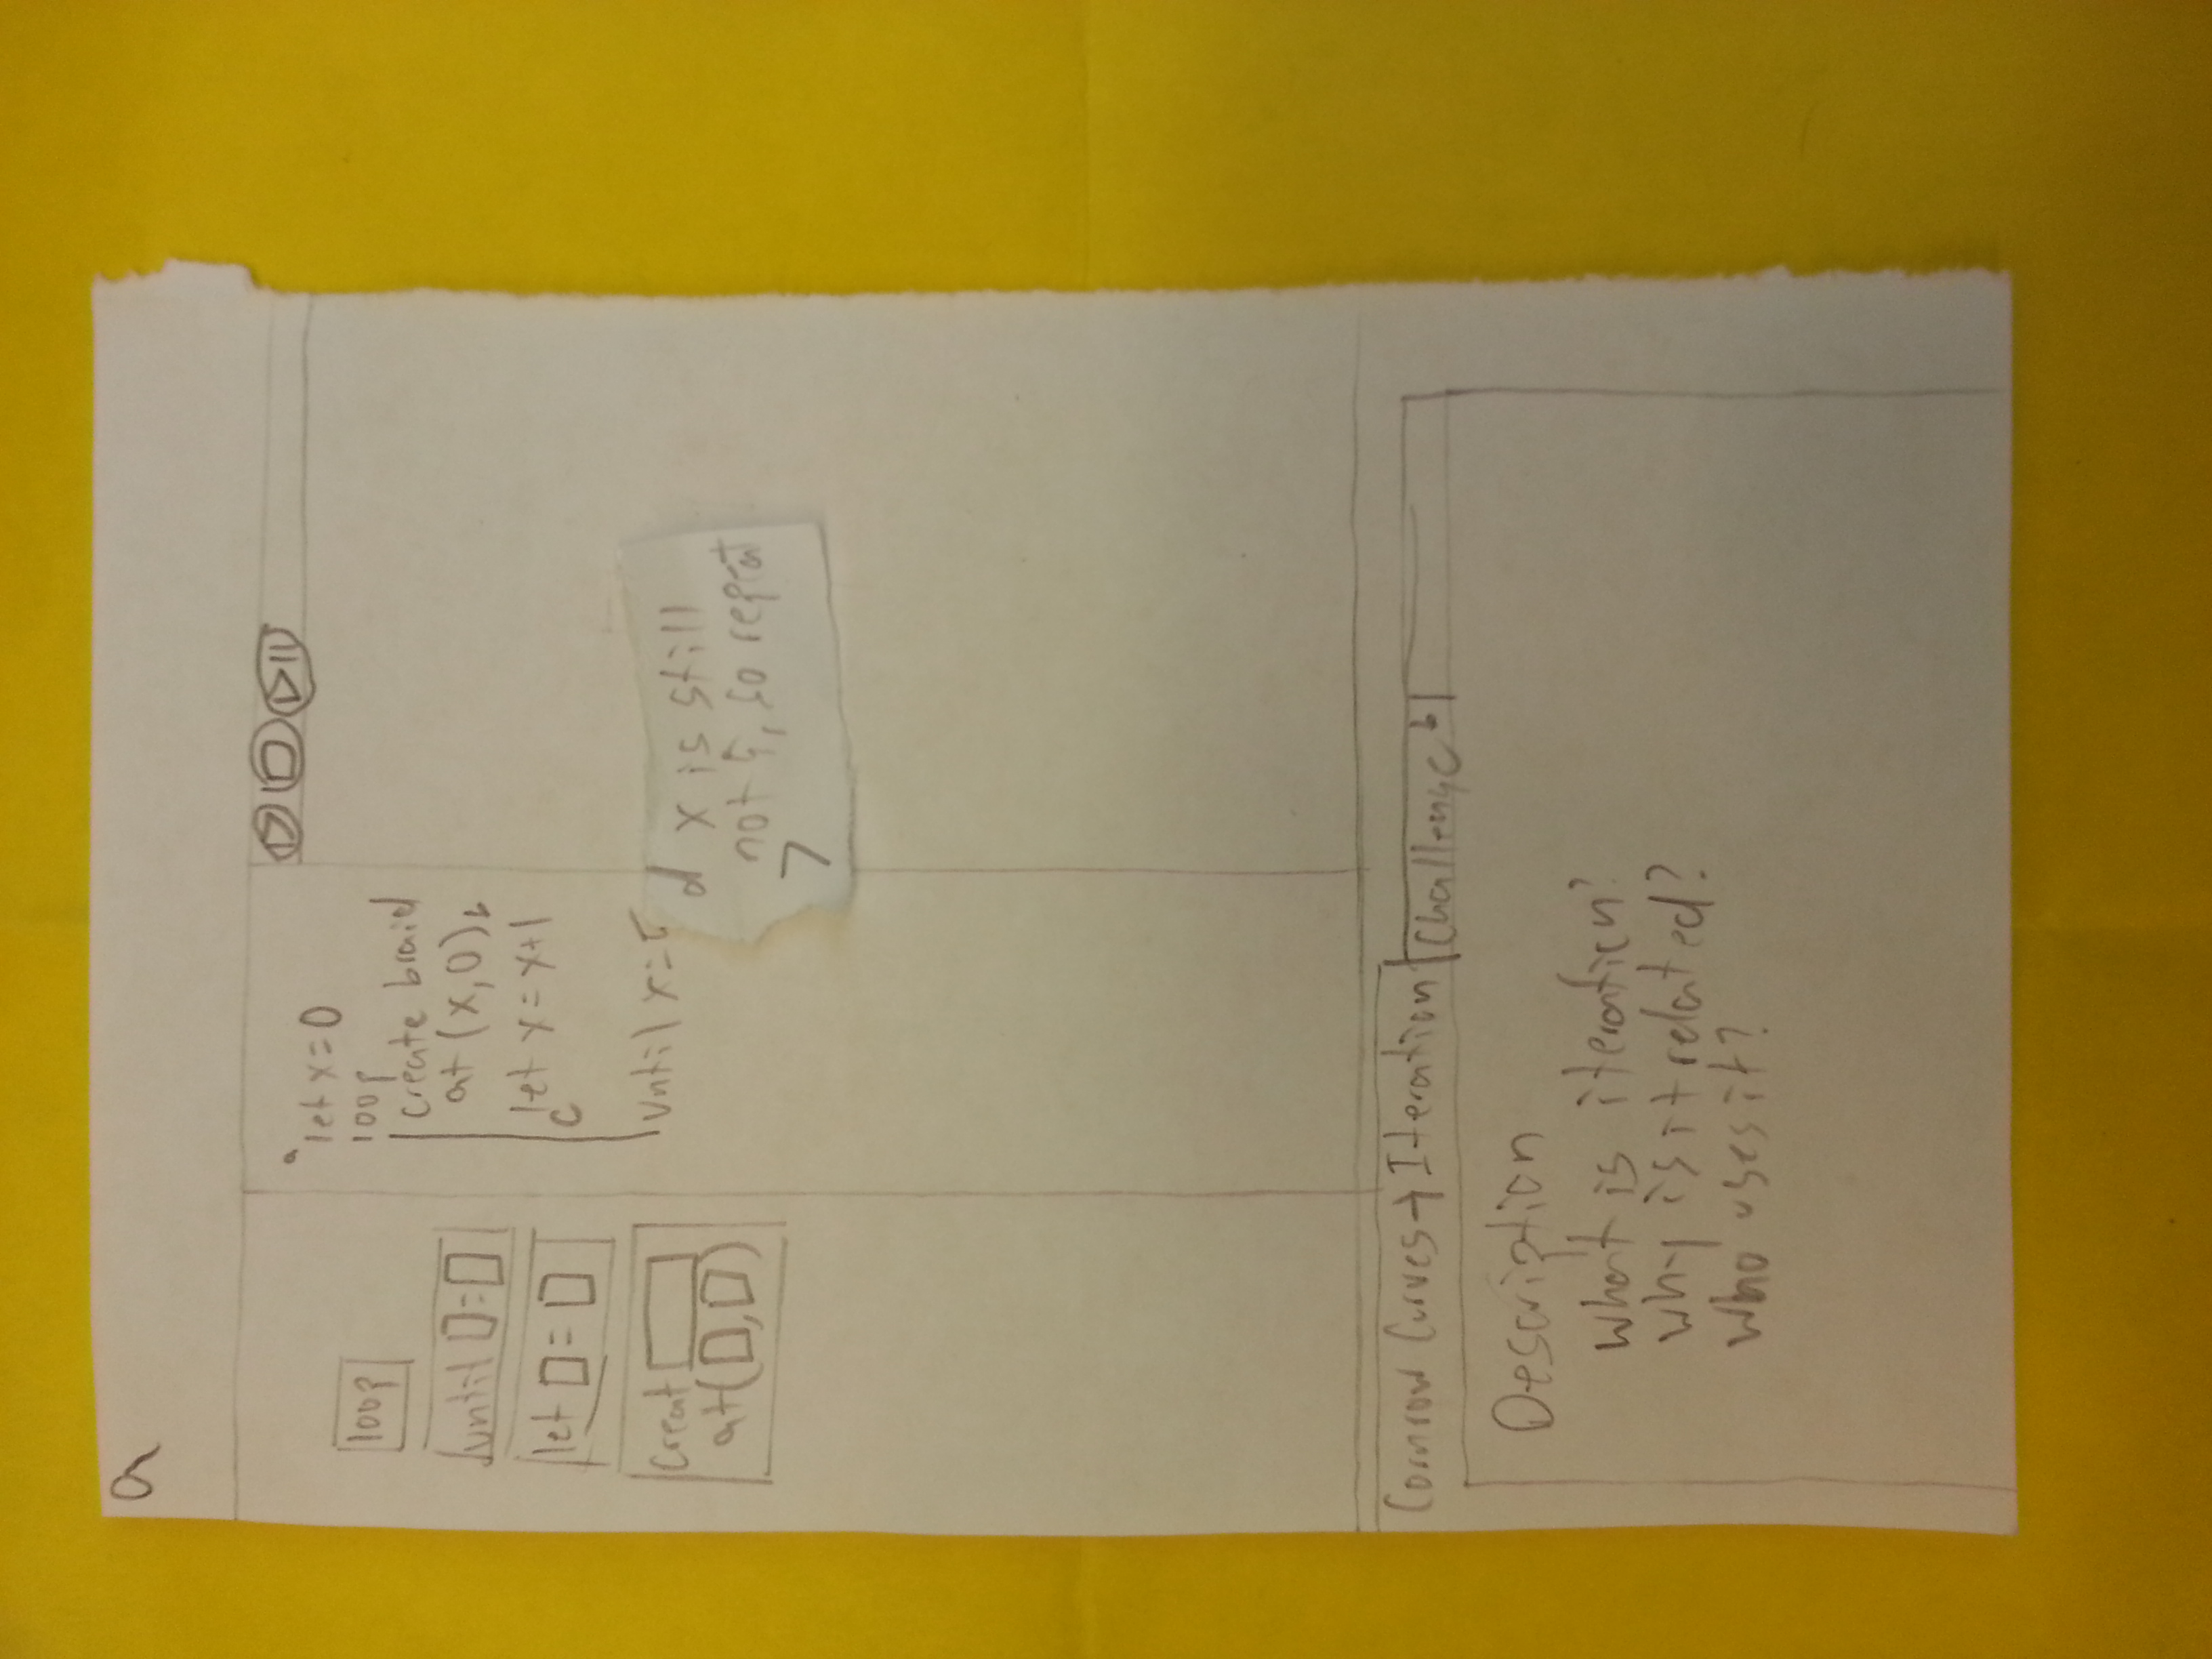 a
loop
until □=□
let □=□
Creat
at(□,□)
a
let x=0
loop
create braid
at (x,0) b
let x=x+1
c
until x=5
d x is still
not 5, so repeat
>
Cornrow Curves→Iteration
Challenge b
Description
What is iteration?
Why is it related?
Who uses it?